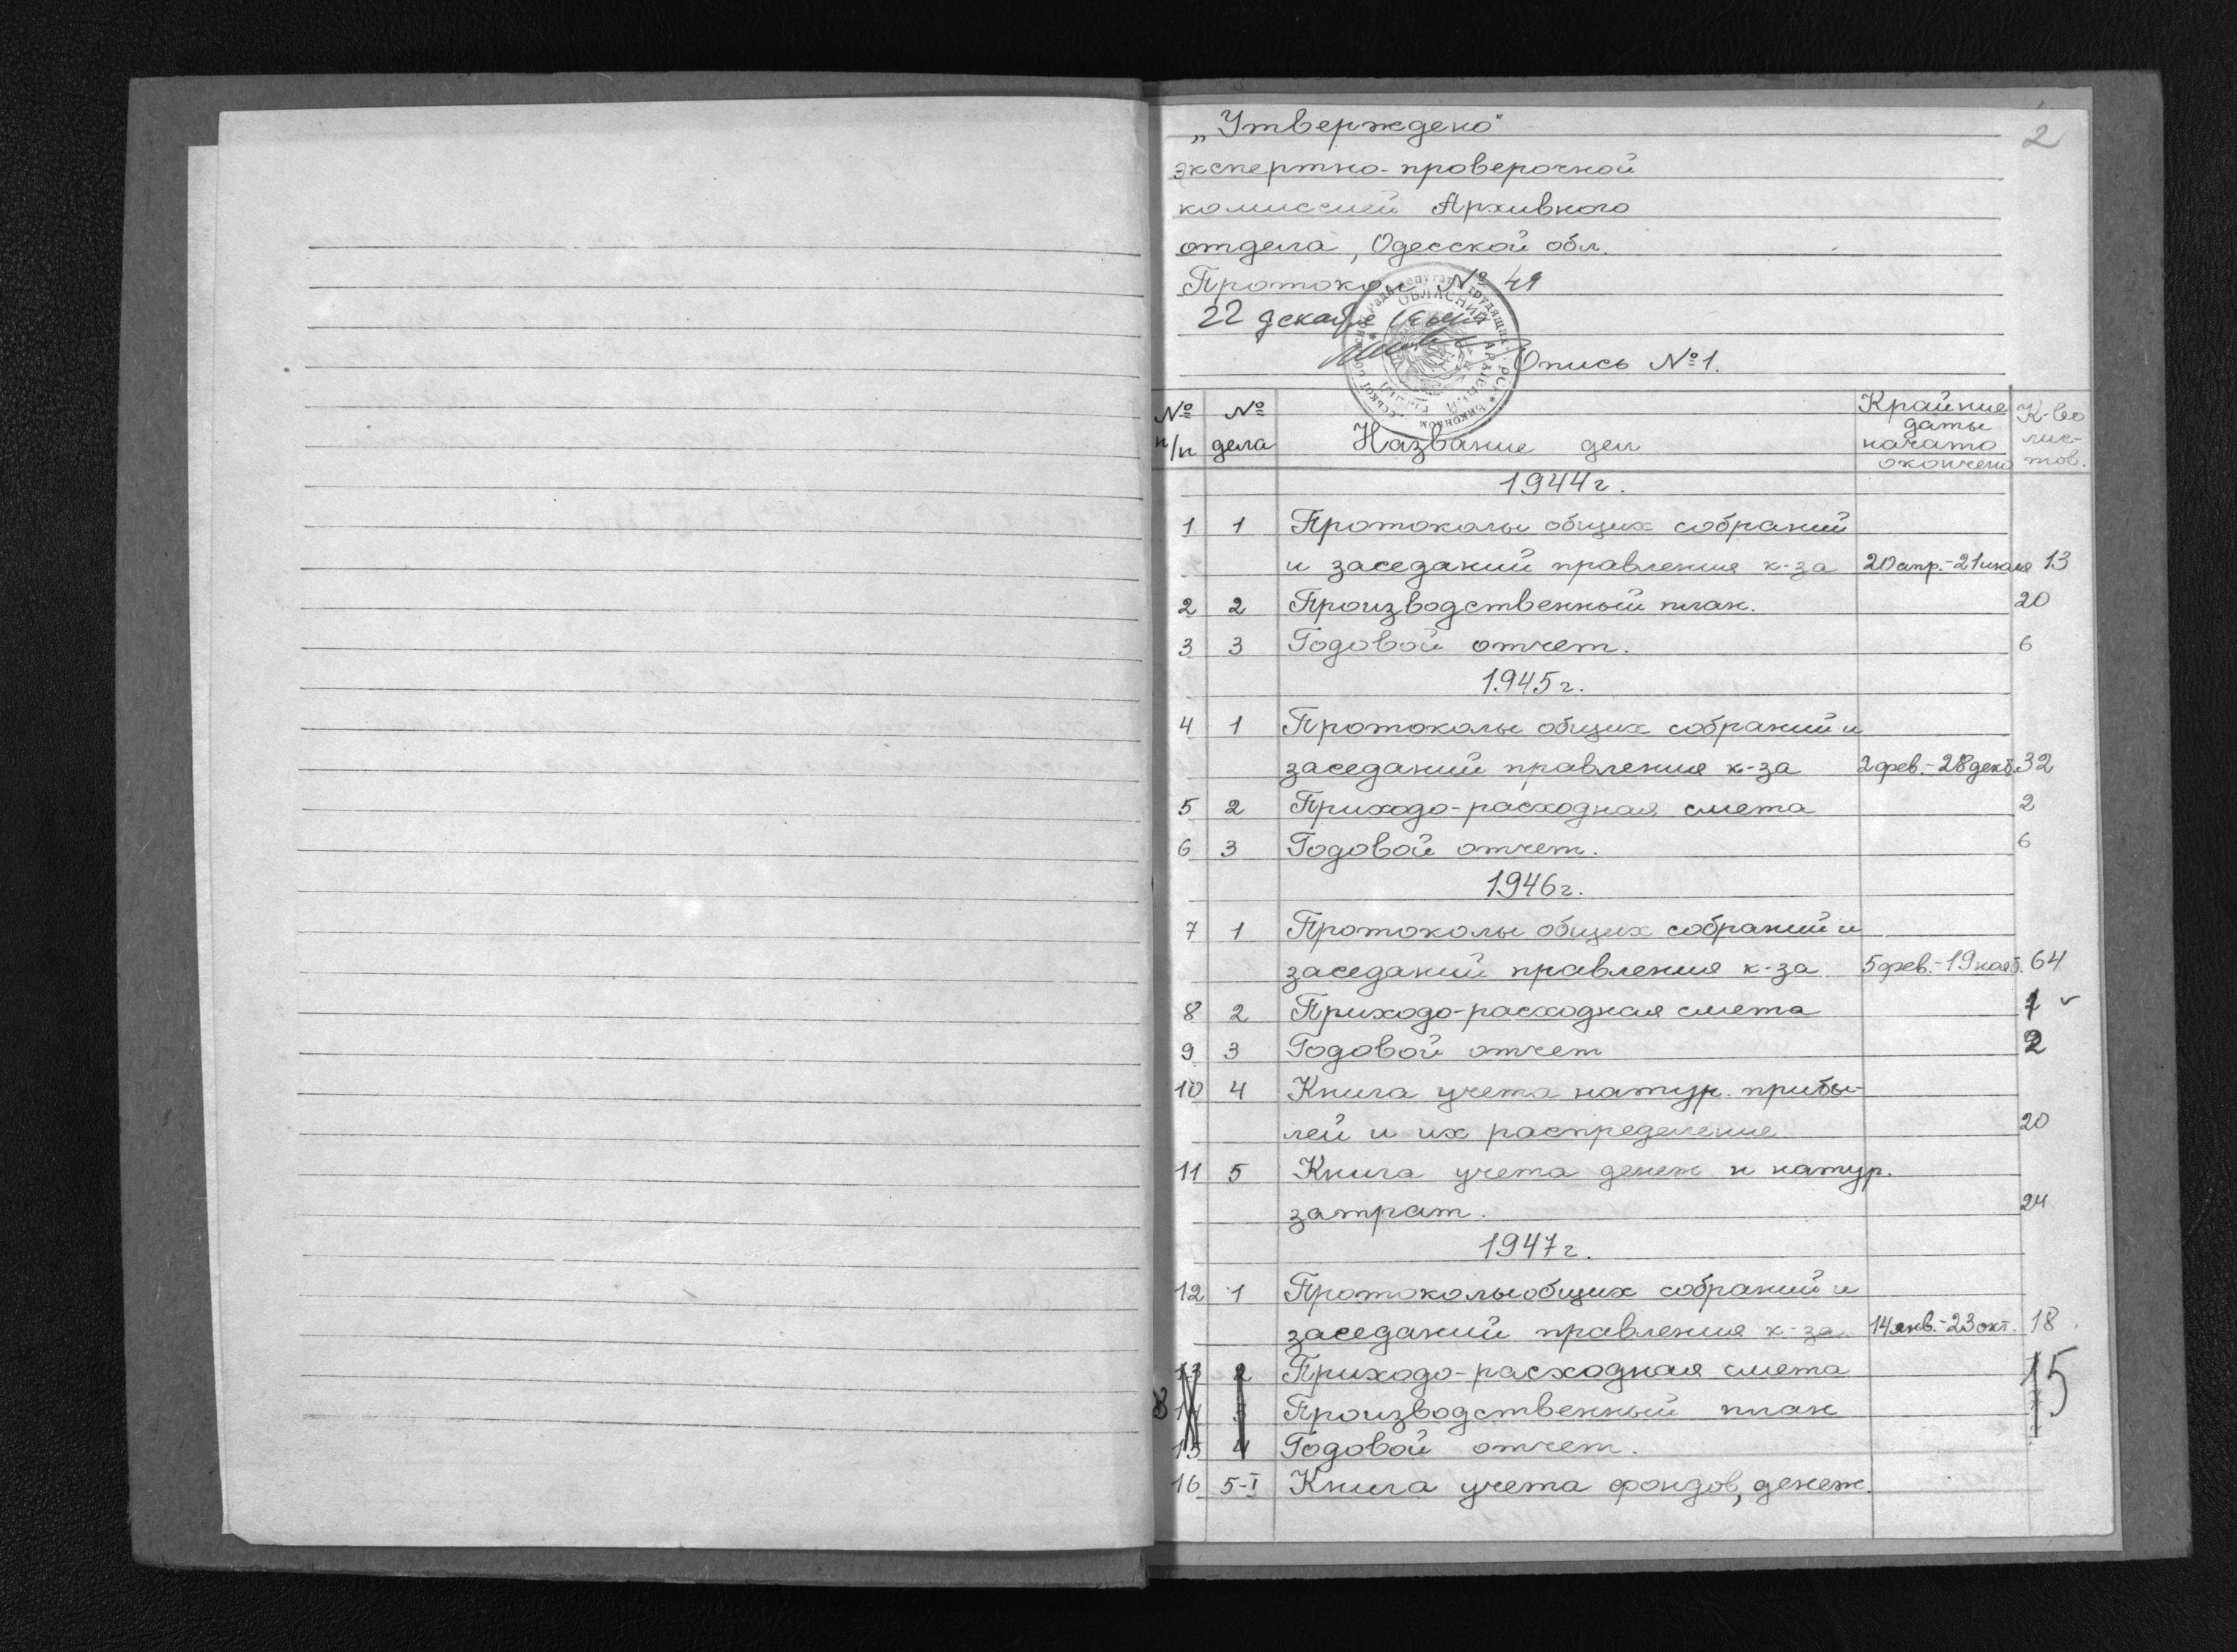 2
„Утверждено"
экспертно-проверочной
комиссией Архивного
отдела, Одесской обл.
Протокол № 49
22 декабря
ОБЛАСНИЙ
Опись №1.
№ п/п № дела Название дел Крайние даты начато окончено К-во лис-тов.
1944г.
1 1 Протоколы общих собраний
и заседаний правления к-за 20апр.-21июля 13
2 2 Производственный план. 20
3 3 Годовой отчет. 6
1945г.
4 1 Протоколы общих собраний и
заседаний правления к-за 2фев.-28декб. 32
5 2 Приходо-расходная смета 2
6 3 Годовой отчет. 6
1946г.
7 1 Протоколы общих собраний и
заседаний правления к-за 5фев.-19нояб. 64
8 2 Приходо-расходная смета 1
9 3 Годовой отчет 2
10 4 Книга учета натур. прибы-
лей и их распределение 20
11 5 Книга учета денеж и натур.
затрат. 24
1947г.
12 1 Протоколы общих собраний и
заседаний правления к-за 14янв.-23окт. 18
13 2 Приходо-расходная смета 15
14 3 Производственный план
15 4 Годовой отчет.
16 5-I Книга учета фондов, денеж.